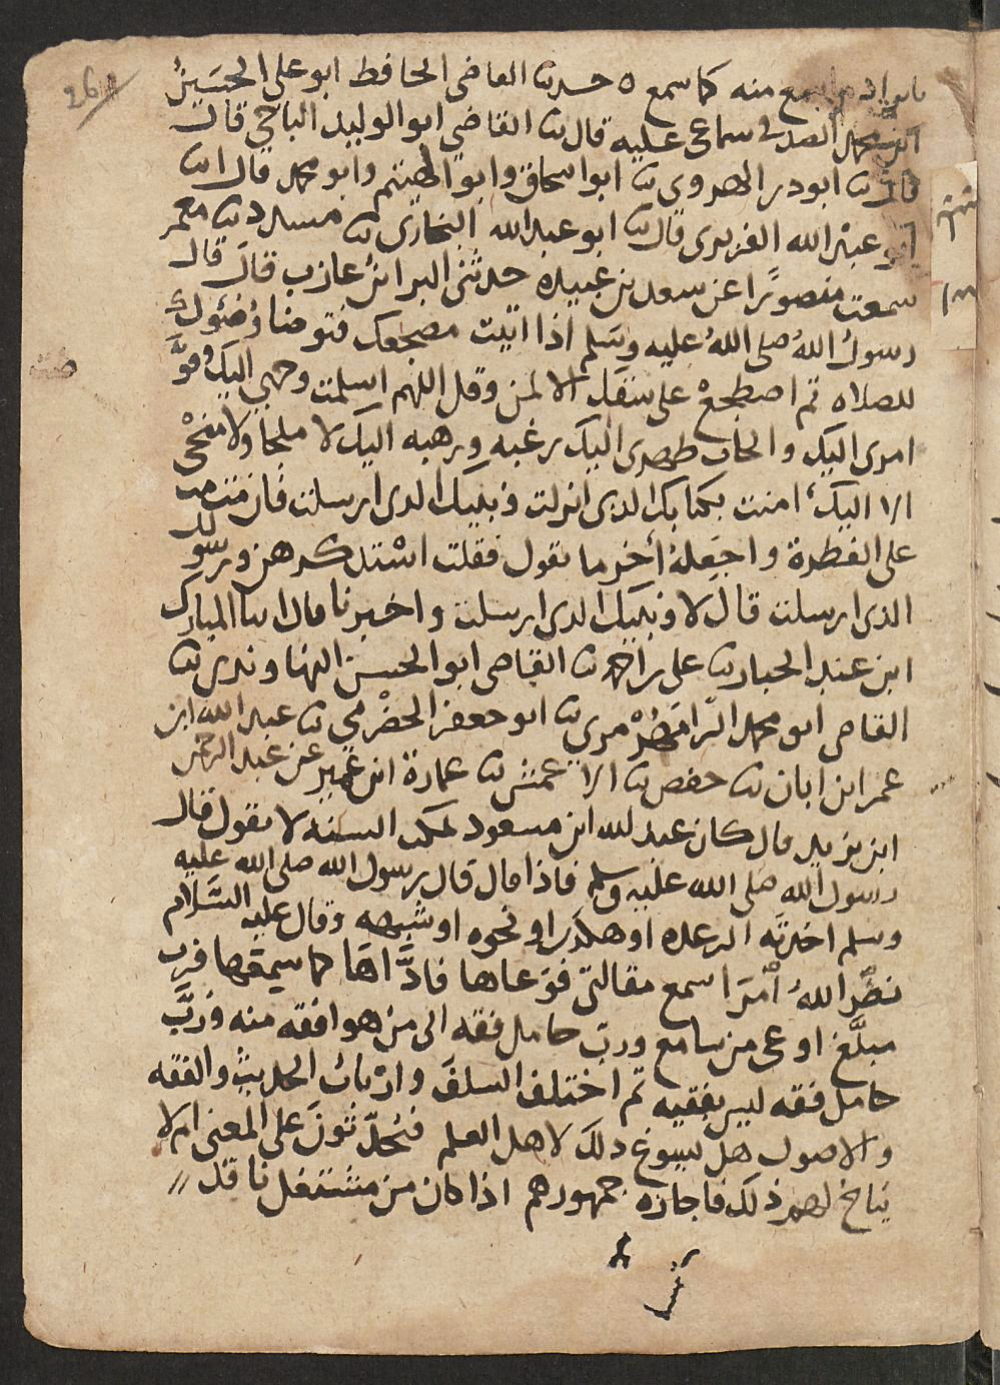 26
منه كما سمع ه حدثنا القاضى الحافظ ابو على الحسَينُ
ابن محمد الصدفى سماعى عليه قال ثنا القاضى ابو الوليد الباجي قال
قال ثنا ابو ذر الهروى ثنا ابو اسحاق وابو الهيثم وابو محمد قال انا
ابو عبد الله الفربرى قال ثنا ابو عبد الله البخارى ثنا مسدد ثنا معمر
سمعت منصورًا عن سعد بن عبيده حدثنى البرا ابنُ عازب قال قال
رسول اللهُ صلى اللهُ عليه وسَلم اذا اتيت مضجعك فتوضا وُضُئوك
للصلاه ثم اضطجعْ على شقك الايمن وقل اللهم اسلمت وجهي اليك وفوَّ
امرى اليك والجات ظهرى اليك رغبه ورهبه اليك لا ملجا ولا منجى
الا اليك امنت بكتابك الذى انزلت ونبيك الذى ارسلت فان مت مت
على الفطرة واجعلهُ أخر ما تقول فقلت اسْتذكرهن وبرسولك
الذى ارسلت قال لا ونبيك الذى ارسلت واخبرنا قال انبا المبارك
ابن عبد الجبار ثنا على بن احمد ثنا القاضى ابو الحسن النهاوندى ثنا
القاضى ابو محمد الرامَهُرْمزى ثنا ابو جعفر الحضْرمي ثنا عبد الله ابن
عمر ابن ابان ثنا حفص ثنا الاعمش ثنا عمارة ابن عمير عن عبد الرحمن
ابن يزيد قال كان عبد لله ابن مسعود يمكث السنه لا يقول قال
رسول الله صلى الله عليه وسلم فاذا قال قال رسول الله صلى الله عليه
وسلم اخذتَه الرعده او هكذى او نحوه او شبهه وقال عليه السَّلام
نضّر اللهُ أمْرَا سمع مقالتى فوعاها فادَّاهَا كما سمعها فرب
مبلَّغ اوعى من سامع وربّ حامل فقه الى من هو افقه منه ورُبَّ
حامل فقه ليس بفقيه ثم اختلف السلفَ وارْبابُ الحديثْ والفقه
والاصول هل يسوغ ذلك لاهل العلم فيُحدّثونَ على المعنى ام لا
يباح لهم ذلك فاجازه جمهورهم اذا كان من مشتغل ناقد //